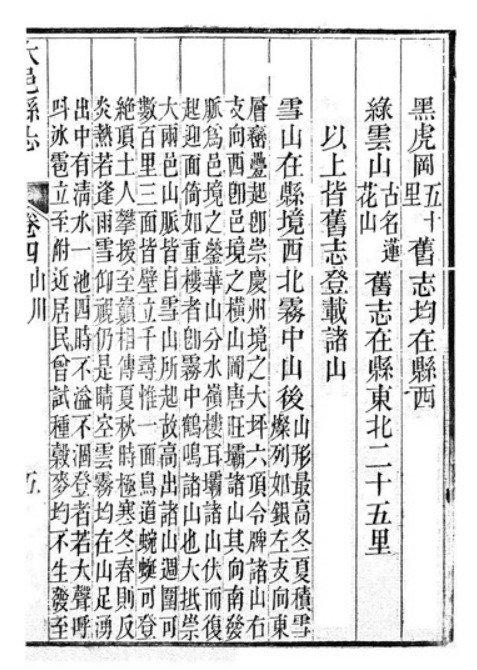 黑虎岡五十里舊志均在縣西
綠雲山古名蓮花山舊志在縣東北二十五里
以上皆舊志登載諸山
雪山在縣境西北霧中山後山形最高冬夏積雪
燦列如銀左支向東
層巒疊起卽崇慶州境之大坪六頂令牌諸山右
支向西卽邑境之橫山岡唐旺壩諸山其向南發
脈爲邑境之鎣華山分水嶺樓耳壩諸山伏而復
起迎面倚如重樓者卽霧中鶴鳴諸山也大抵崇
大兩邑山脈皆自雪山所起故高出諸山週圍可
數百里三面皆壁立千尋惟一面鳥道蜿蜒可登
絶頂土人攀援至巔相傳夏秋時極寒冬春則反
炎熱若逢雨雪仰視仍是晴空雲霧均在山足湧
出中有清水一池四時不溢不涸登者若大聲呼
叫冰雹立至附近居民曾試種穀麥均不生發至
大邑縣志 卷四 山川 五